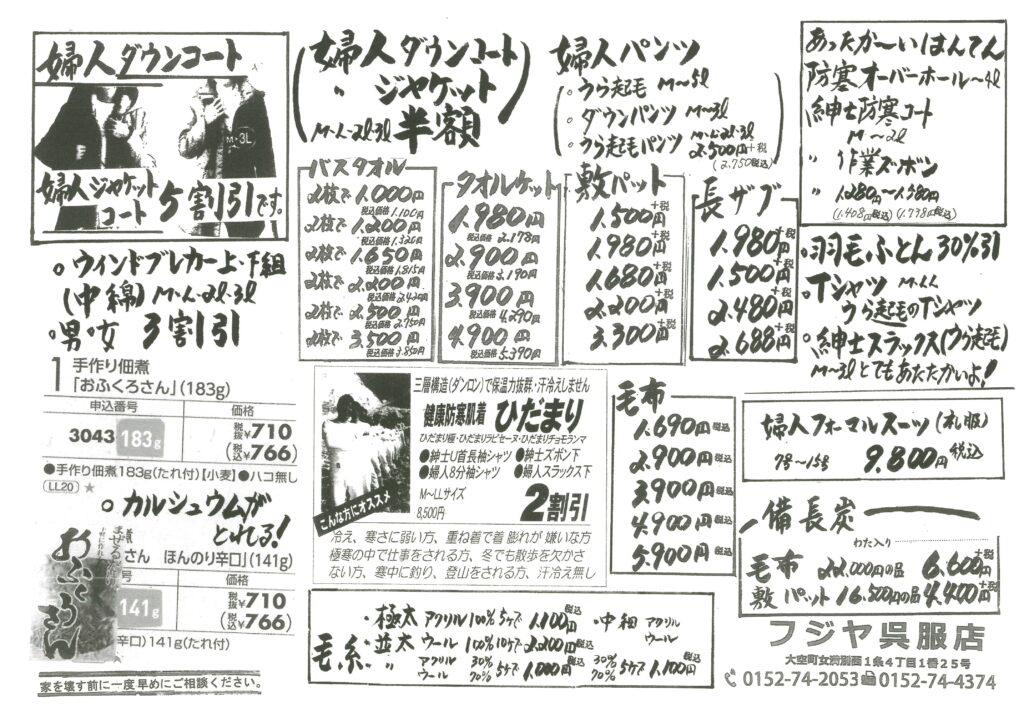 婦人ダウンコート
M~3L
婦人ジャケット
コート 5割引です。
婦人ダウンコート
〃 ジャケット
M-L-2l-3l 半額
婦人パンツ
・うら起毛 M~5l
・ダウンパンツ M~3l
・うら起毛パンツ M-L-2l-3l
2.500円+税
(2.750税込)
あったか~いはんてん
防寒オーバーホール~4l
紳士防寒コート
M~2l
〃 作業ズボン
〃 1.280円~1.580円
バスタオル
2枚で 1.000円
税込価格1.100円
2枚で 1.200円
税込価格1.320円
2枚で 1.650円
税込価格1.815円
2枚で 2.200円
税込価格2.420円
2枚で 2.500円
税込価格2.750円
2枚で 3.500円
税込価格3.850円
タオルケット
1.980円
税込価格2.178円
2.900円
税込価格3.190円
3.900円
税込価格4.290円
4.900円
税込価格5.390円
敷パット
1.500円+税
1.980円+税
1.680円+税
2.200円+税
3.300円+税
長ザブ
1.980円+税
1.500円+税
2.480円+税
2.688円+税
・羽毛ふとん30%引
・Tシャツ M-L-L
うら起毛のTシャツ
・紳士スラックス(ウラ起毛)
M~3lとてもあたたかいよ!
・ウィンドブレカー上・下組
(中綿)M-L-2l-3l
・男・女 3割引
1 手作り佃煮
「おふくろさん」(183g)
申込番号 価格
3043 183g 税抜¥710
(税込¥766)
●手作り佃煮183g(たれ付)【小麦】●ハコ無し
(LL20) ★
・カルシュウムが
とれる!
おふくろさん
さん ほんのり辛口」(141g)
号 価格
141g 税抜¥710
(税込¥766)
辛口)141g(たれ付)
家を壊す前に一度早めにご相談ください。
三層構造(ダンロン)で保温力抜群・汗冷えしません
健康防寒肌着 ひだまり
ひだまり極・ひだまりラビセーヌ・ひだまりチョモランマ
●紳士U首長袖シャツ ●紳士ズボン下
●婦人8分袖シャツ ●婦人スラックス下
M~LLサイズ
8,500円 2割引
こんな方にオススメ
冷え、寒さに弱い方、重ね着で着膨れが嫌いな方
極寒の中で仕事をされる方、冬でも散歩を欠かさ
ない方、寒中に釣り、登山をされる方、汗冷え無し
毛布
1.690円税込
2.900円税込
3.900円税込
4.900円税込
5.900円税込
婦人フォーマルスーツ(礼服)
7号~15号 9.800円税込
備長炭
わた入り
毛布 22.000円の品 6.600円+税
敷パット 16.500円の品 4.400円+税
毛糸
・極太 アクリル100% 5ケで 1.100円税込
・並太 ウール 100% 10ケで 2.200円税込
〃 アクリル 30% ウール 70% 5ケで 1.000円税込
・中細 アクリル ウール
30% 70% 5ケで 1.100円税込
フジヤ呉服店
大空町女満別西1条4丁目1番25号
0152-74-2053 0152-74-4374